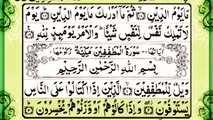 مَا يَوْمُ الدِّيْنِ ۙ ثُمَّ مَاۤ اَدْرٰىكَ مَا يَوْمُ الدِّيْنِ ۙ يَوْمَ
لَا تَمْلِكُ نَفْسٌ لِّنَفْسٍ شَيْـًٔا ۚ وَالْاَمْرُ يَوْمَئِذٍ لِّلّٰهِ
سُوْرَةُ الْمُطَفِّفِيْنَ مَكِّيَّةٌ
بِسْمِ اللّٰهِ الرَّحْمٰنِ الرَّحِيْمِ
وَيْلٌ لِّلْمُطَفِّفِيْنَ ۙ الَّذِيْنَ اِذَا اكْتَالُوْا عَلَى النَّاسِ
يَسْتَوْفُوْنَ ۖ وَاِذَا كَالُوْهُمْ اَوْ وَّزَنُوْهُمْ يُخْسِرُوْنَ